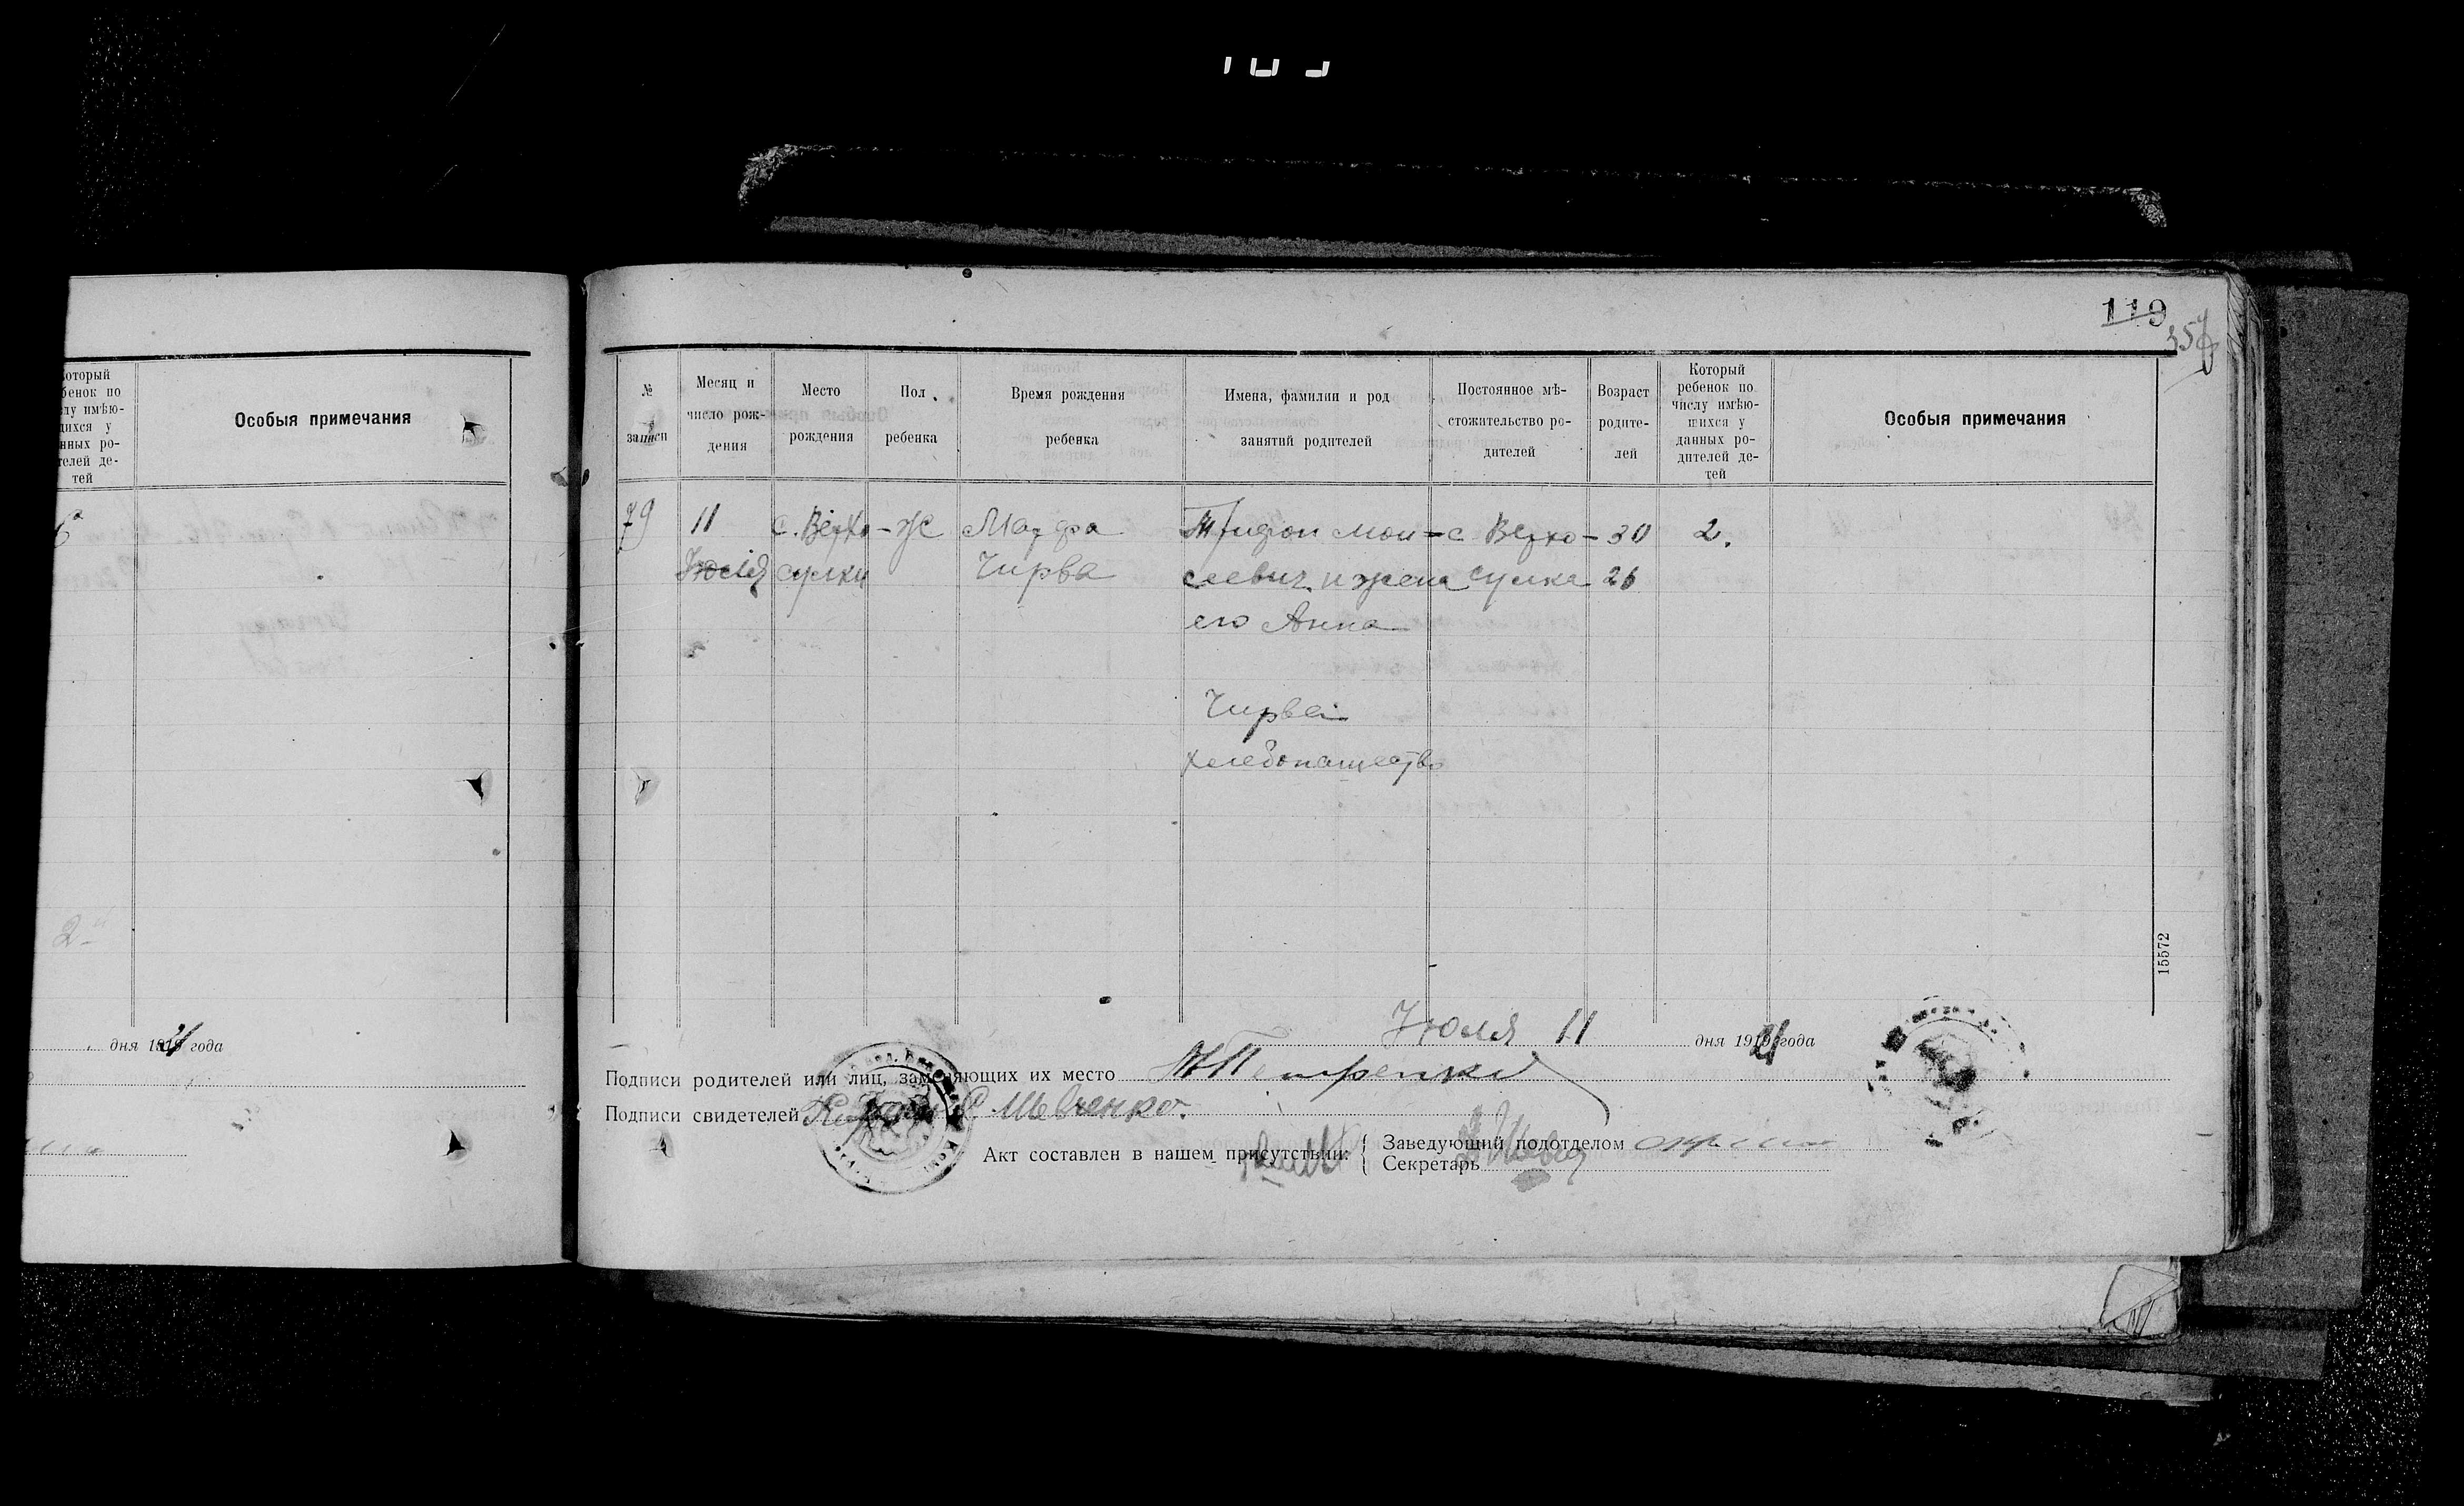 119
357
оторый
бенок по
слу имѣю-
щихся у
нных ро-
телей де-
тей
Особыя примечания
№
записи
Месяц и
число рож-
дения
Место
рождения
Пол
ребенка
Время рождения
ребенка
Имена, фамилии и род
занятий родителей
Постоянное мѣ-
стожительство ро-
дителей
Возраст
родите-
лей
Который
ребенок по
числу имѣю-
шихся у
данных ро-
дителей де-
тей
Особыя примечания
79
11
Июля
с. Верхо-
сулки
Ж
Марфа
Чирва
Трифон Мои-
сеевич и жена
его Анна
Чирва
хлебопашество
с Верхо-
сулка
30
26
2.
2
15572
дня 1921 года
Июля 11 дня 1921 года
Подписи родителей или лиц, заменяющих их место Петренко
Подписи свидетелей Шевченко.
Акт составлен в нашем присутствии:
Заведующий подотделом
Секретарь